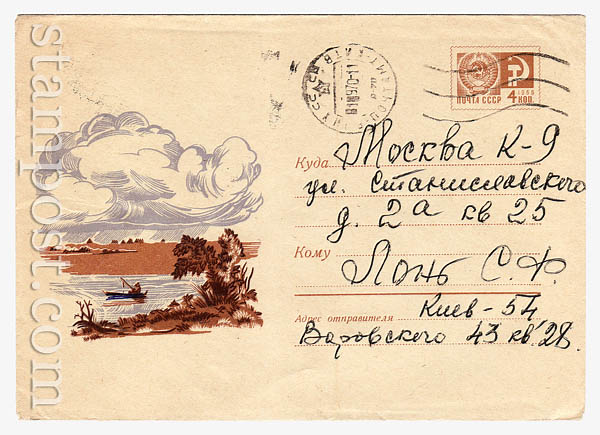 stampost.com
ПОЧТА СССР 1966 4 КОП.
Куда Москва К-9
ул. Станиславского
д. 2а кв 25
Кому Лонь С. Ф.
Адрес отправителя Киев-54
Воровского 43 кв. 28.